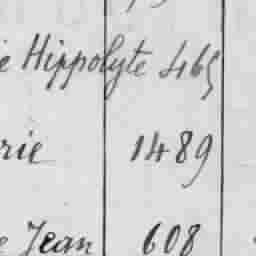 e Hippolyte 465
rie 1489
e Jean 608